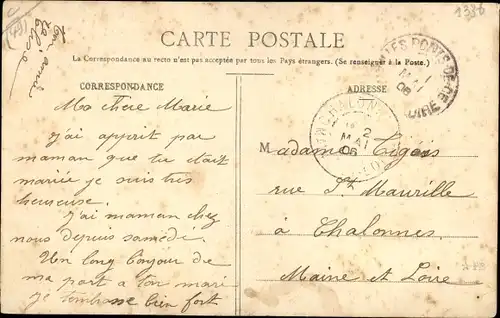 (49)
1336
ton amie
Elise
CARTE POSTALE
La Correspondance au recto n'est pas acceptée par tous les Pays étrangers. (Se renseigner à la Poste.)
CORRESPONDANCE
ADRESSE
Ma chere Marie
j'ai apprit par
maman que tu était
mariée je suis très
heureuse.
j'ai maman chez
nous depuis samedi.
Un long bonjour de
ma part a ton mari
je t'embrasse bien fort
LES PONTS-DE-CÉ
MAI
06
LOIRE
CHALONNES
2
MAI
06
Madame
rue St Maurille
à Chalonnes
Maine et Loire